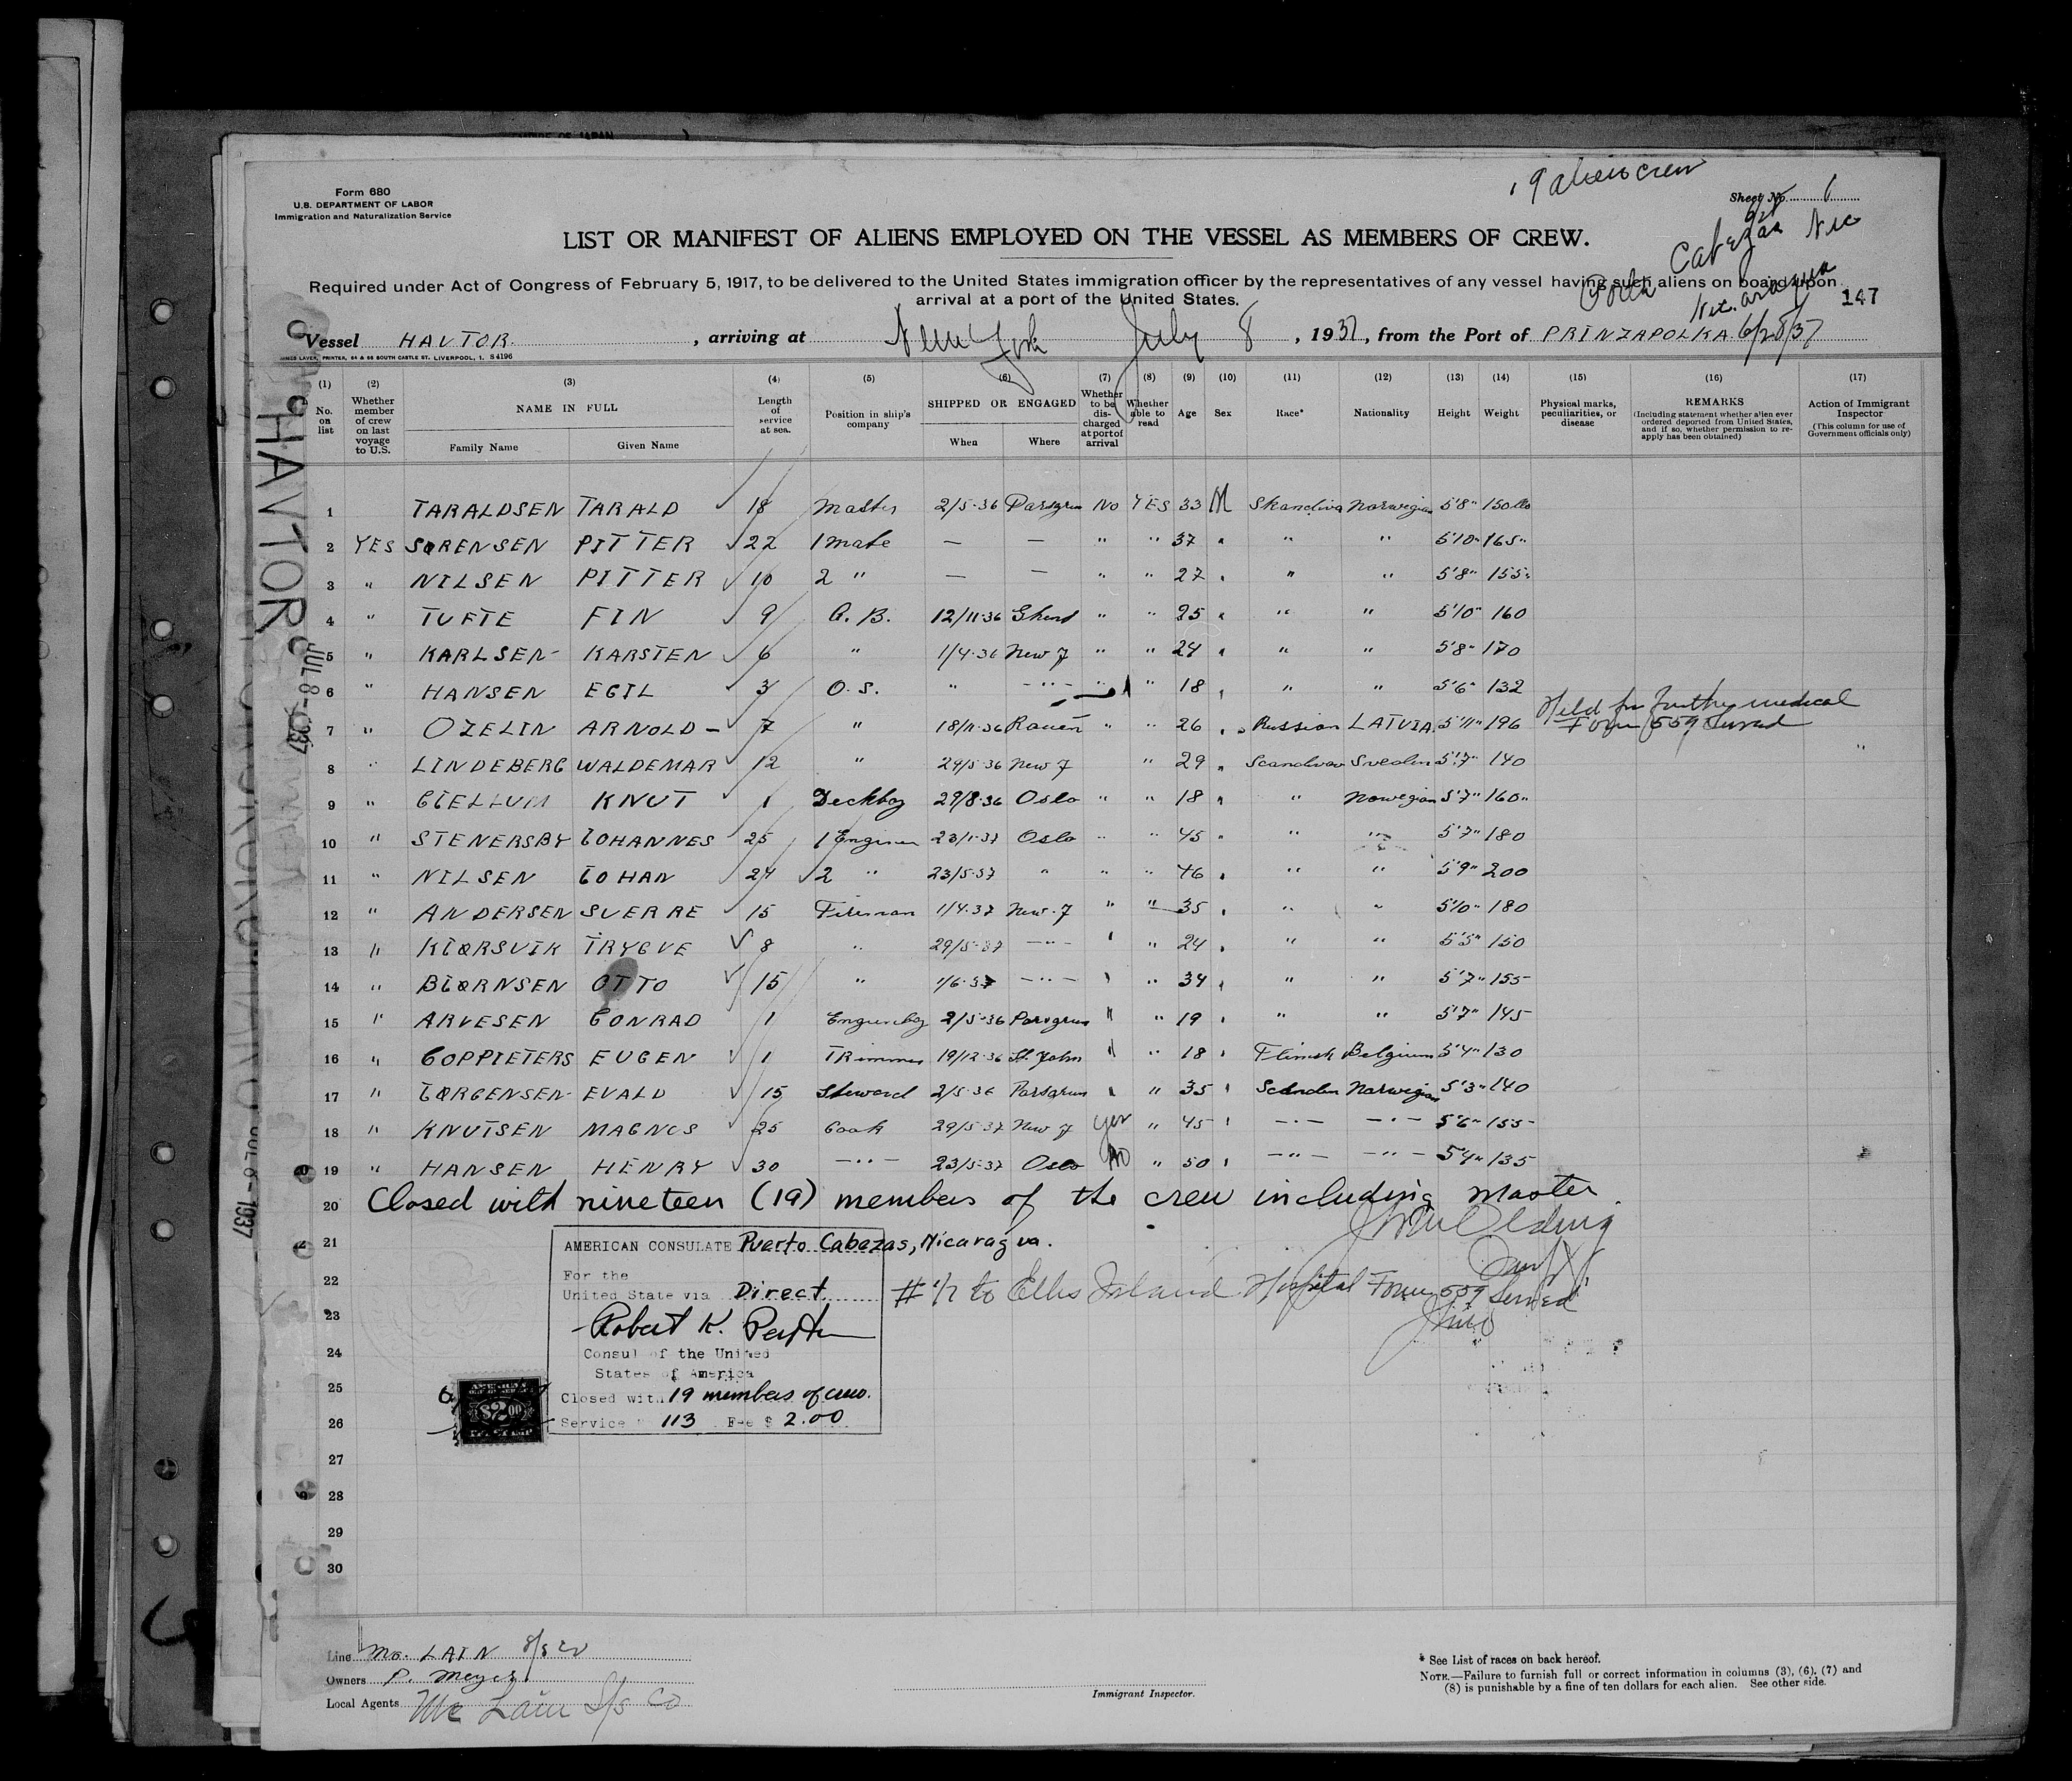 Form 680
U.S. DEPARTMENT OF LABOR
Immigration and Naturalization Service
19 alien crew
Sheet No. 1
LIST OR MANIFEST OF ALIENS EMPLOYED ON THE VESSEL AS MEMBERS OF CREW.
Cabezas Nic
Required under Act of Congress of February 5, 1917, to be delivered to the United States immigration officer by the representatives of any vessel having such aliens on board upon
arrival at a port of the United States.
147
Vessel HAVTOR, arriving at New York July 8, 1937, from the Port of PRINZAPOLKA 6/28/37
PRINTER, 64 & 66 SOUTH CASTLE ST. LIVERPOOL, 1. S4196
(1) (2) (3) (4) (5) (6) (7) (8) (9) (10) (11) (12) (13) (14) (15) (16) (17)
No. on list
Whether member of crew on last voyage to U.S.
NAME IN FULL
Family Name
Given Name
Length of service at sea.
Position in ship's company
SHIPPED OR ENGAGED
When
Where
Whether to be discharged at port of arrival
Whether able to read
Age
Sex
Race*
Nationality
Height
Weight
Physical marks, peculiarities, or disease
REMARKS
(Including statement whether alien ever ordered deported from United States, and if so, whether permission to reapply has been obtained)
Action of Immigrant Inspector
(This column for use of Government officials only)
1 TARALDSEN TARALD 18 Master 2/5-36 Porsgrun No YES 33 M Skandiva Norwegian 5'8" 150 lbs
2 YES SØRENSEN PITTER 22 1 mate — — " " 37 " " " 5'10" 165"
3 " NILSEN PITTER 10 2 " — — " " 27 " " " 5'8" 155"
4 " TUFTE FIN 9 A. B. 12/11-36 Ghent " " 25 " " " 5'10" 160
5 " KARLSEN KARSTEN 6 " 1/4-36 New Y " " 24 " " " 5'8" 170
6 " HANSEN EGIL 3 O. S. " — " — " " 18 " " " 5'6" 132
7 " OZELIN ARNOLD 7 " 18/11-36 Rouen " " 26 " Russian LATVIA 5'11" 196 Held for further medical
Form 559 served
8 " LINDEBERG WALDEMAR 12 " 29/5-36 New Y " 29 " Scandinav Svedin 5'7" 140
9 " GJELLUM KNUT 1 Deckboy 29/8-36 Oslo " " 18 " " Norwegian 5'7" 160"
10 " STENERSBY JOHANNES 25 1 Engineer 23/1-37 Oslo " " 45 " " " 5'7" 180
11 " NILSEN JOHAN 24 2 " 23/5-37 " " " 46 " " " 5'9" 200
12 " ANDERSEN SVERRE 15 Fireman 1/4-37 New-Y " " 35 " " " 5'10" 180
13 " KJØRSVIK TRYGVE 8 " 29/5-37 — " — " " 24 " " " 5'5" 150
14 " BJØRNSEN OTTO 15 " 1/6-37 — " — " " 34 " " " 5'7" 155
15 " ARVESEN CONRAD 1 Engineboy 2/5-36 Porsgrun " " 19 " " " 5'7" 145
16 " COPPIETERS EUGEN 1 TRimmer 19/12-36 St. John " " 18 " Flimsh Belgium 5'4" 130
17 " JØRGENSEN EVALD 15 Steward 2/5-36 Porsgrun " " 35 " Scanden Norwegian 5'3" 140
18 " KNUTSEN MAGNUS 25 Cook 29/5-37 New Y Yes " 45 " — " — — " — 5'6" 155
19 " HANSEN HENRY 30 — " — 23/5-37 Oslo No " 50 " — " — — " — 5'4" 135
20 Closed with nineteen (19) members of the crew including master.
21
22
23
24
25
26
27
28
29
30
AMERICAN CONSULATE Puerto Cabezas, Nicaragua.
For the
United State via Direct
Robert K. Peyton
Consul of the United
States of America
Closed with 19 members of crew.
Service # 113 Fee $ 2.00
$2.00
#1/7 to Ellis Island Hospital Form 559 Served
HAVTOR
JUL 8 - 1937
Line Mc. LAIN
Owners P. Meyer
Local Agents Mc Lain S/s Co
Immigrant Inspector.
* See List of races on back hereof.
NOTE.—Failure to furnish full or correct information in columns (3), (6), (7) and
(8) is punishable by a fine of ten dollars for each alien. See other side.